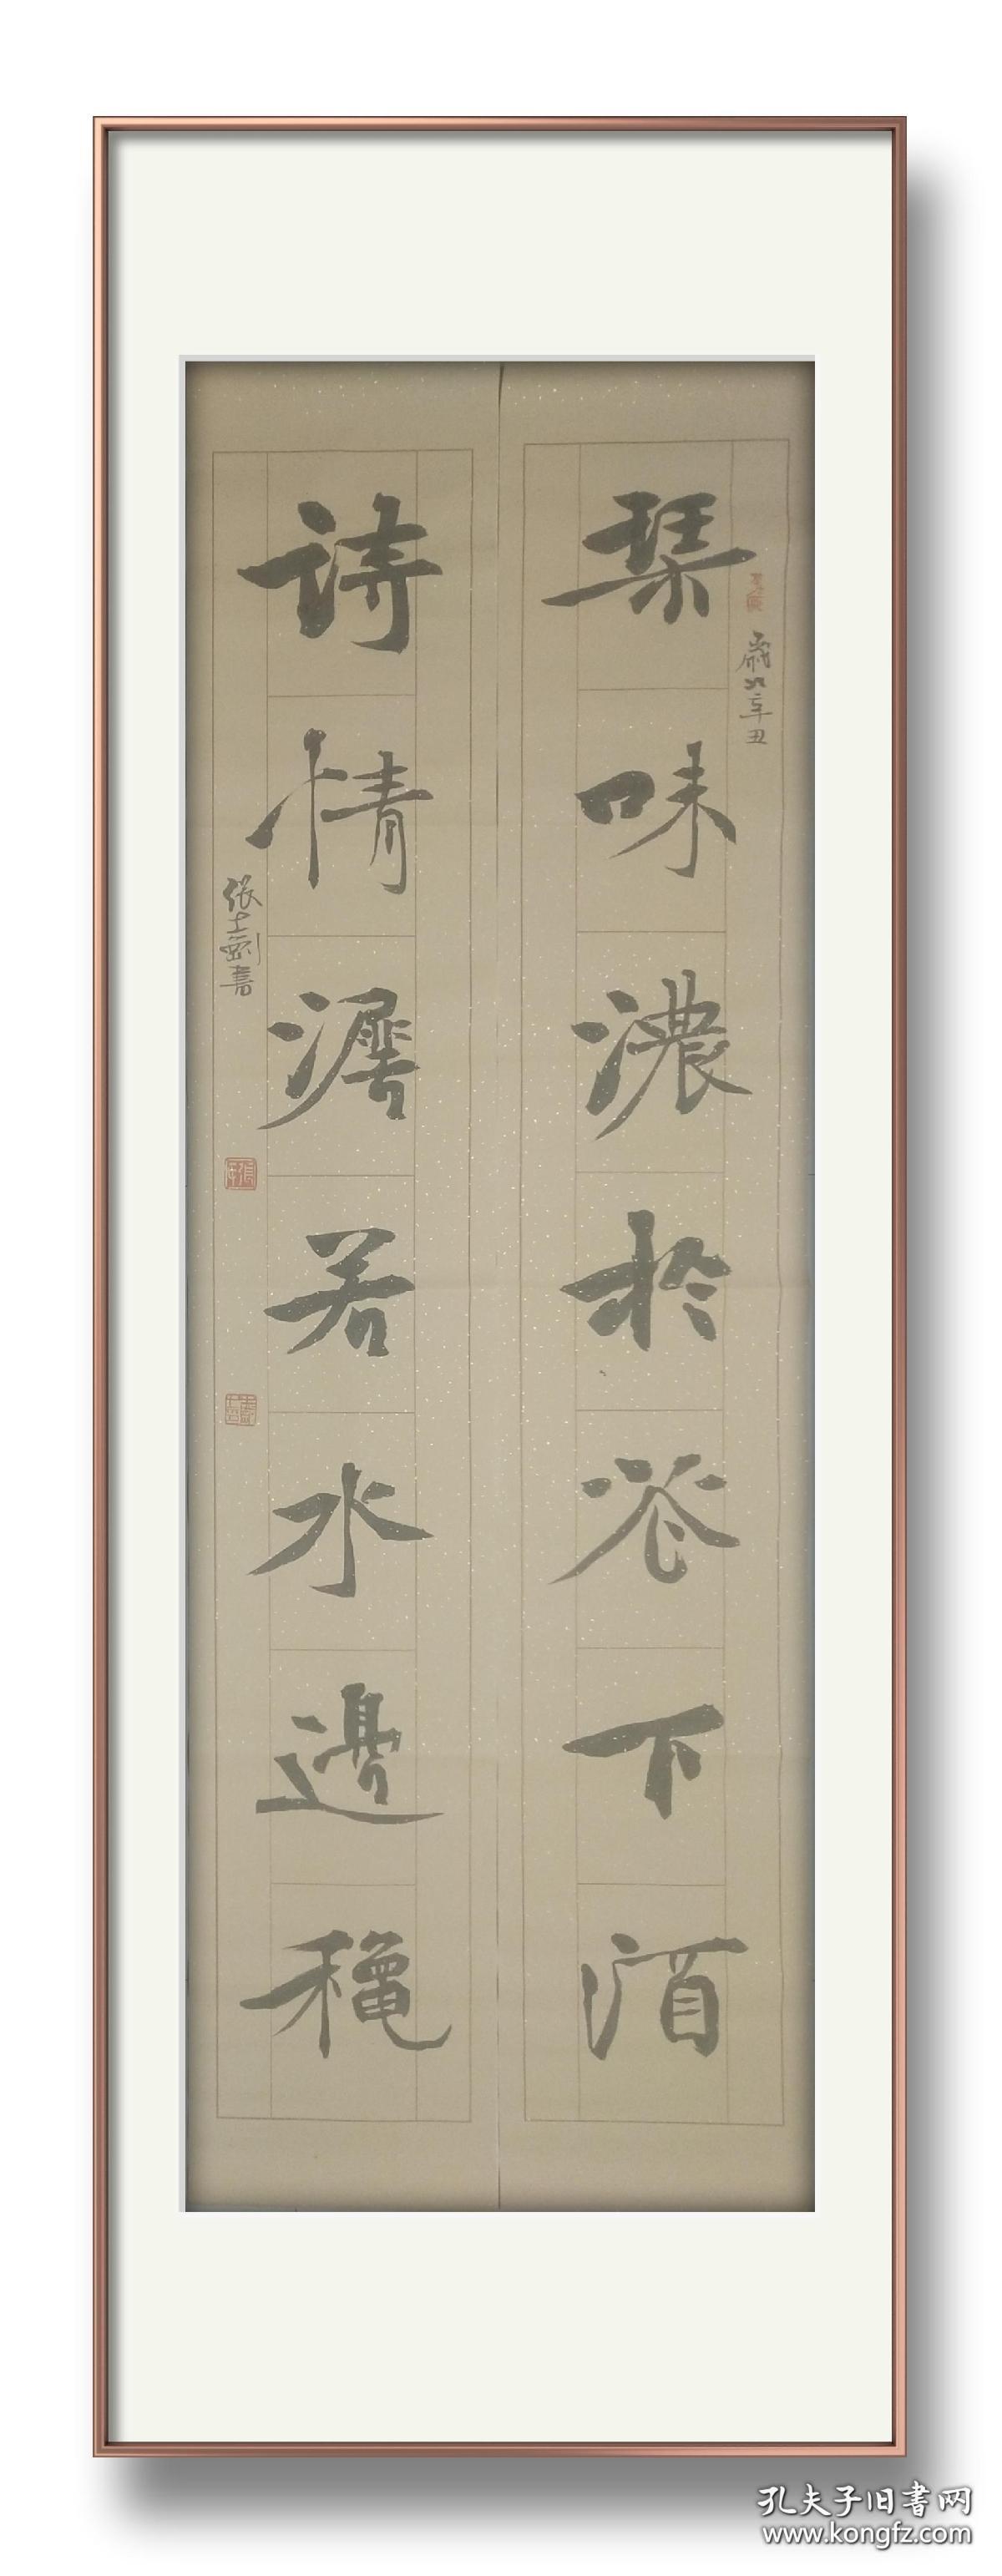 琹味濃於花下酒
歲次辛丑
詩情濳若水邊穐
張士劍書
孔夫子旧書网
www.kongfz.com